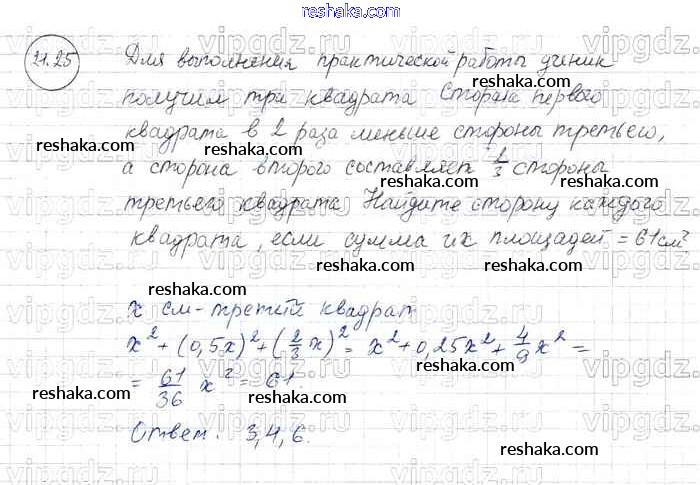 reshaka.com
21.25 Для выполнения практической работы ученик
получил три квадрата Сторона первого
квадрата в 2 раза меньше стороны третьего,
reshaka.com reshaka.com reshaka.com
а сторона второго составляет 2/3 стороны
третьего квадрата Найдите сторону каждого
reshaka.com reshaka.com
квадрата, если сумма их площадей = 61 см²
reshaka.com reshaka.com
x см - третий квадрат
x² + (0,5x)² + (2/3 x)² = x² + 0,25x² + 4/9 x² =
reshaka.com reshaka.com
= 61/36 x² = 61.
reshaka.com reshaka.com
Ответ. 3,4,6.
reshaka.com reshaka.com